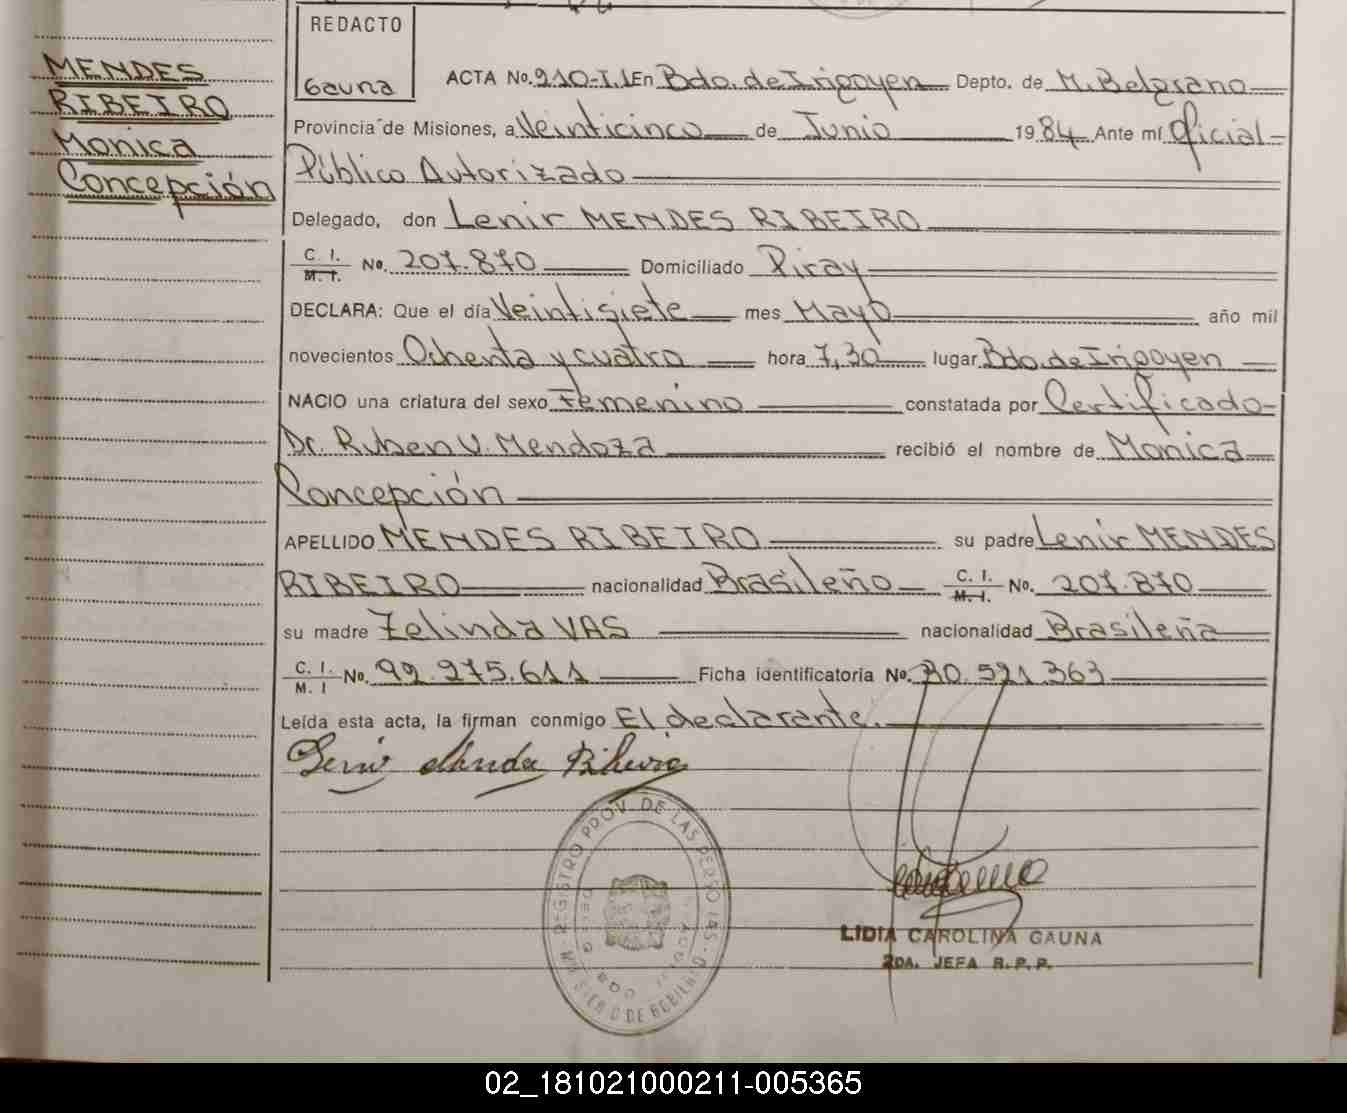 MENDES
RIBEIRO
Monica
Concepción
REDACTO
Gauna
ACTA No. 210-T.1 En Bdo. de Irigoyen Depto. de M. Belgrano
Provincia de Misiones, a Veinticinco de Junio 1984 Ante mí Oficial
Público Autorizado
Delegado, don Lenir MENDES RIBEIRO
C. I.
M. I. No. 207.870 Domiciliado Piray
DECLARA: Que el día Veintisiete mes Mayo año mil
novecientos Ochenta y cuatro hora 7,30 lugar Bdo. de Irigoyen
NACIO una criatura del sexo Femenino constatada por Certificado
Dr. Ruben V. Mendoza recibió el nombre de Monica
Concepción
APELLIDO MENDES RIBEIRO su padre Lenir MENDES
RIBEIRO nacionalidad Brasileño C. I. M. I. No. 207.870
su madre Zelinda VAS nacionalidad Brasileña
C. I.
M. I No. 92.275.611 Ficha identificatoria No. 30.521.363
Leída esta acta, la firman conmigo El declarante.
REGISTRO PROV. DE LAS PERSONAS
LIDIA CAROLINA GAUNA
2DA. JEFA R.P.P.
02_181021000211-005365